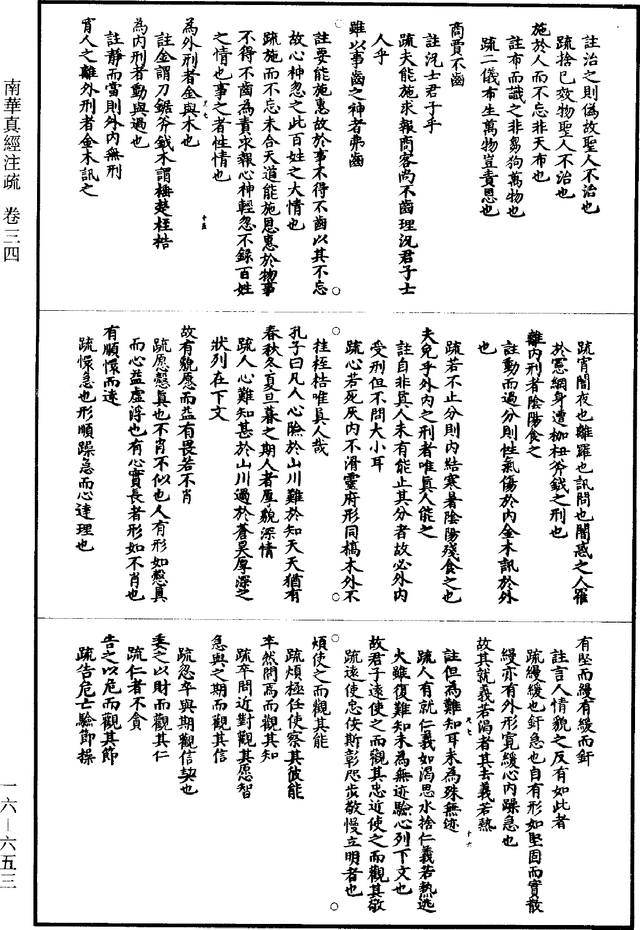 註治之則偽故聖人不治也
疏捨己效物聖人不治也
施於人而不忘非天布也
註布而識之非芻狗萬物也
疏二儀布生萬物豈責恩也
商賈不齒
註況士君子乎
疏夫能施求報商客尚不齒理況君子士
人乎
雖以事齒之神者弗齒
註要能施惠故於事不得不齒以其不忘
故心神忽之此百姓之大情也
疏施而不忘未合天道能施恩惠於物事
不得不齒為責求報心神輕忽不錄百姓
之情也事之者性情也
為外刑者金與木也
註金謂刀鋸斧鉞木謂棰楚桎梏
為內刑者動與過也
註靜而當則外內無刑
宵人之離外刑者金木訊之
疏宵闇夜也離羅也訊問也闇惑之人罹
於憲網身遭枷杻斧鉞之刑也
離內刑者陰陽食之
註動而過分則性氣傷於內金木訊於外
也
疏若不止分則內結寒暑陰陽殘食之也
夫免乎外內之刑者唯真人能之
註自非真人未有能止其分者故必外內
受刑但不問大小耳
疏心若死灰內不滑靈府形同槁木外不
挂桎梏唯真人哉
孔子曰凡人心險於山川難於知天天猶有
春秋冬夏旦暮之期人者厚貌深情
疏人心難知甚於山川過於蒼昊厚深之
狀列在下文
故有貌愿而益有畏若不肖
疏愿慤真也不肖不似也人有形如慤真
而心益虛浮也有心實長者形如不肖也
有順懁而達
疏懁急也形順躁急而心達理也
有堅而縵有緩而釬
註言人情貌之反有如此者
疏縵緩也釬急也自有形如堅固而實散
縵亦有外形寬緩心內躁急也
故其就義若渴者其去義若熱
註但為難知耳未為殊無迹
疏人有就仁義如渴思水捨仁義若熱逃
火雖復難知未為無迹驗心列下文也
故君子遠使之而觀其忠近使之而觀其敬
疏遠使忠佞斯彰咫步敬慢立明者也
煩使之而觀其能
疏煩極任使察其彼能
卒然問焉而觀其知
疏卒問近對觀其愿智
急與之期而觀其信
疏忽卒與期觀信契也
委之以財而觀其仁
疏仁者不貪
告之以危而觀其節
疏告危亡驗節操
南華真經注疏　卷三四
一六—六五三